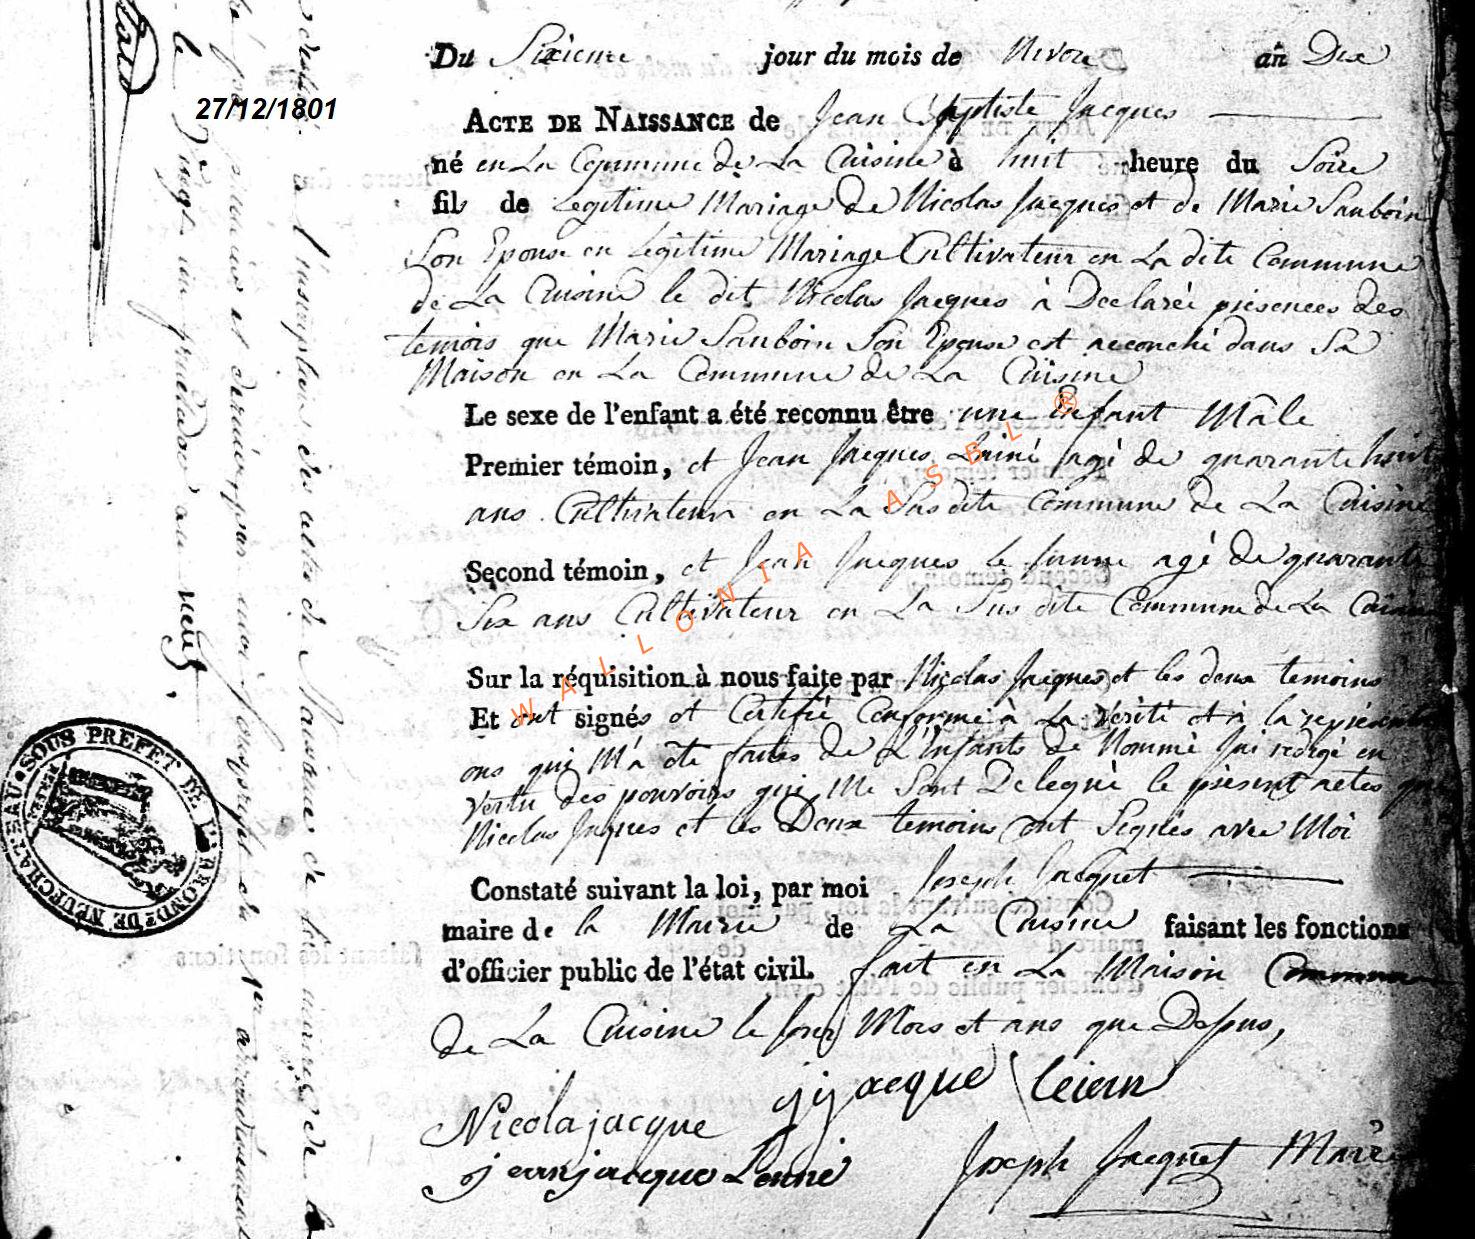 Du Sixieme jour du mois de Nivose an Dix
27/12/1801
ACTE DE NAISSANCE de Jean Baptiste Jacques
né en La Commune de La Cuisine à huit heure du Soire
fils de Legitime Mariage de Nicolas Jacques et de Marie Sauboin
Son Epouse en Legitime Mariage Cultivateur en La dite Commune
de La Cuisine le dit Nicolas Jacques à Declarée présences des
temois que Marie Sauboin Son Epouse est accouché dans Sa
Maison en La Commune de La Cuisine
Le sexe de l'enfant a été reconnu être une Enfant Mâle
Premier témoin, et Jean Jacques Lainé agé de quarante huit
ans Cultivateur en La Susdite Commune de La Cuisine
Second témoin, et Jean Jacques le Junne agé de quarante
Six ans Cultivateur en La Sus dite Commune de La Cuisine
Sur la réquisition à nous faite par Nicolas Jacques et les deux temoins
Et ont signés et Certifié Conforme à La Vérité et à la représentati
ons qui M'a été faites de L'Enfants de Nommé Jai redigé en
vertu des pouvoirs qui Me Sont Delegué le présent actes que
Nicolas Jaques et les Deux temoins ont Signés avec Moi
Constaté suivant la loi, par moi Joseph Jacquet
maire de la Mairie de La Cuisine faisant les fonctions
d'officier public de l'état civil. fait en La Maison Commune
de La Cuisine le Jour Mois et ans que Desus,
Nicola jacque jj jacque
jean jacque Lenné Joseph Jacquet Maire
WALLONIA ASBL ®
SOUS PREFET DE L'AROND.T DE NEUFCHATEAU
l'inscription des actes de Naissance de la mairie de
premier et dernier par moi Sousprefet du 1er arrondissement
le vingt un neuf.